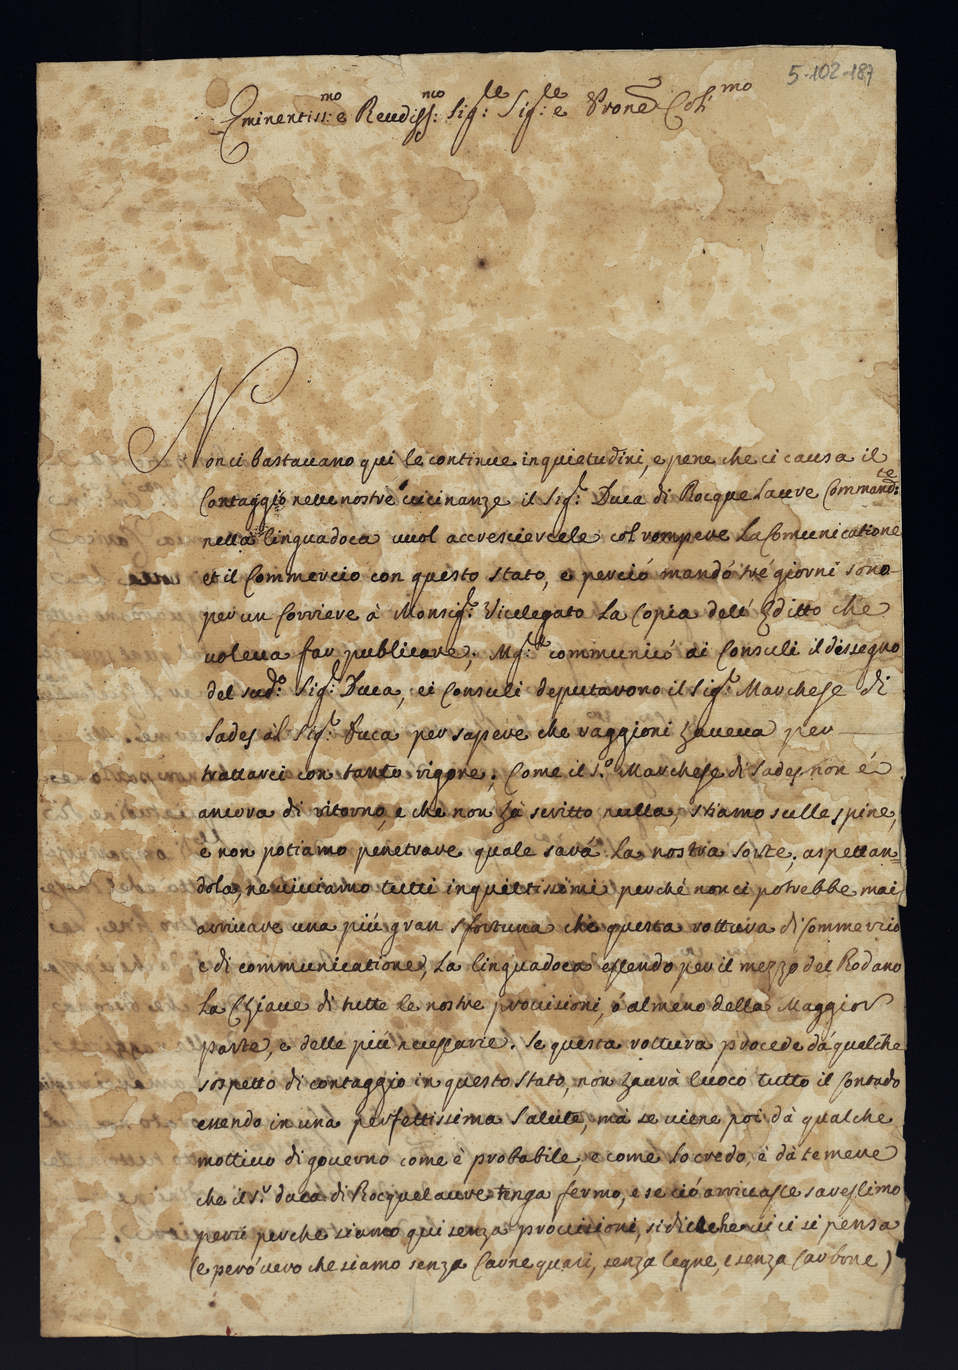 5-102-187
Eminentiss:mo e Reudiss:mo Sig:re Sig:re e Prone Col:mo
Non ci bastauano qui le continue inquietudini, e pene che ci causa il
Contaggio nelle nostre uicinanze il Sig:r Duca di Rocque Laure Command:te
nella linguadoca uuol accresciercele col rompere La Comunicatione
et il Commercio con questo stato, e perciò mandò tré giorni sono
per un Corriere à Monsig:r Vicelegato La Copia dell' Editto che
uoleua far publicare; Mg:r communicò ai Consuli il dissegno
del sud:o Sig:r Duca, ei Consuli deputarono il Sig:r Marchese di
Sades al Sig:r Duca per sapere che raggioni haueua per
trattarci con tanto rigore; Come il S:r Marchese di Sades non é
ancora di ritorno, e che non hà scritto nulla, stiamo sulle spine,
e non potiamo penetrare quale sarà La nostra sorte; aspettan=
dola, ne uiuiamo tutti inquiettissimi perché non ci potrebbe mai
arriuare una più gran sfortuna che questa rottura di Commercio
e di communicatione, La linguadoca essendo per il mezzo del Rodano
La Chiaue di tutte le nostre prouisioni, ó almeno della Maggior
parte, e delle più necessarie. Se questa rottura procede dá qualche
sospetto di contaggio in questo stato, non haurà luoco tutto il Contado
essendo in una perfettissima salute, mà se uiene poi dà qualche
mottiuo di gouerno come è probabile, e come Lo credo, è dà temere
che il S:r duca di Rocquelaure tenga fermo, e se ció arriuasse saressimo
persi perche siamo qui senza prouisioni, si dice che ui ci si pensa
(e peró uero che siamo senza Carne quasi, senza legne, e senza Carbone)